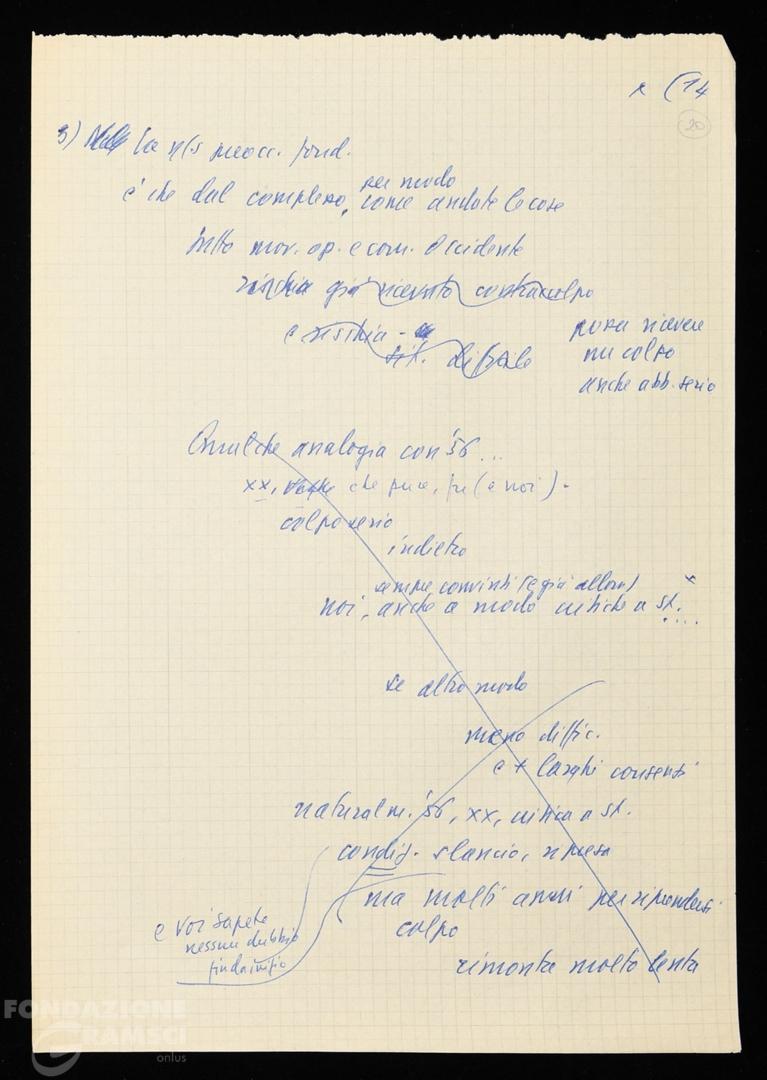 (14
20
3) La ns preocc. fond.
è che dal complesso, per modo come andate le cose
tutto mov. op. e com. Occidente
rischia già ricevuto contraccolpo
e rischia -
sit. difficile
possa ricevere
un colpo
anche abb. serio
Qualche analogia con '56 ...
xx, che pure, fu (e noi).
colpo serio
indietro
sempre convinti (e già allora)
noi, anche a modo critiche a St.
se altro modo
meno diffic.
e + larghi consensi
naturalm. '56, xx, critica a St.
condiz. slancio, ripresa
ma molti anni per riprenderci
colpo
e voi sapete
nessun dubbio
fin da inizio
rimonta molto lenta
FONDAZIONE
GRAMSCI
onlus